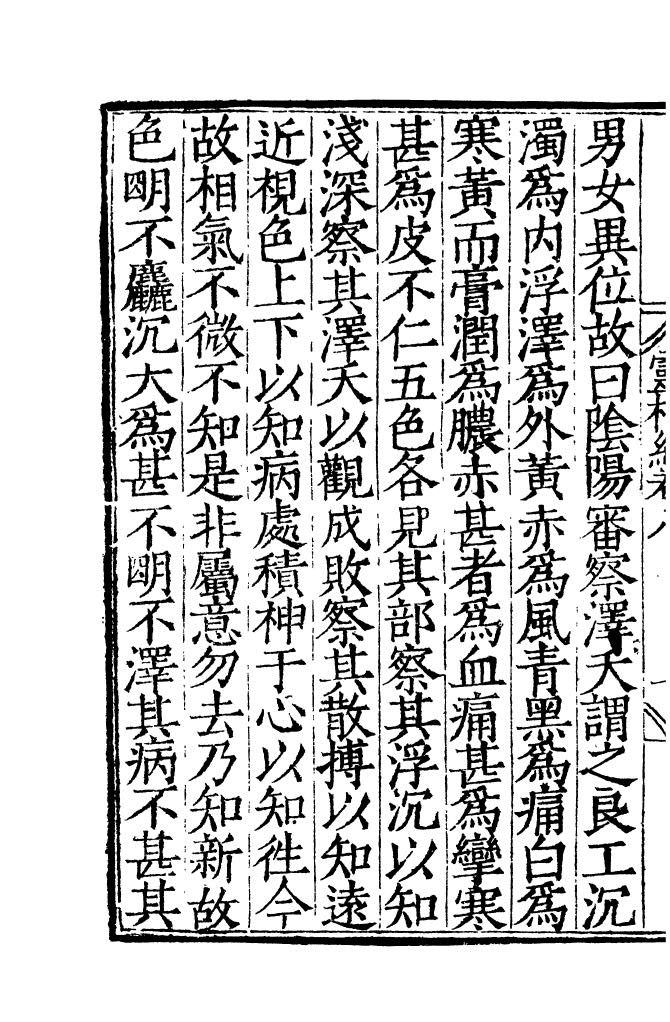 男女異位故曰陰陽審察澤夭謂之良工沉
濁爲内浮澤爲外黃赤爲風青黑爲痛白爲
寒黃而膏潤爲膿赤甚者爲血痛甚爲攣寒
甚爲皮不仁五色各見其部察其浮沉以知
淺深察其澤夭以觀成敗察其散摶以知遠
近視色上下以知病處積神于心以知徃今
故相氣不微不知是非屬意勿去乃知新故
色明不麤沉大爲甚不明不澤其病不甚其